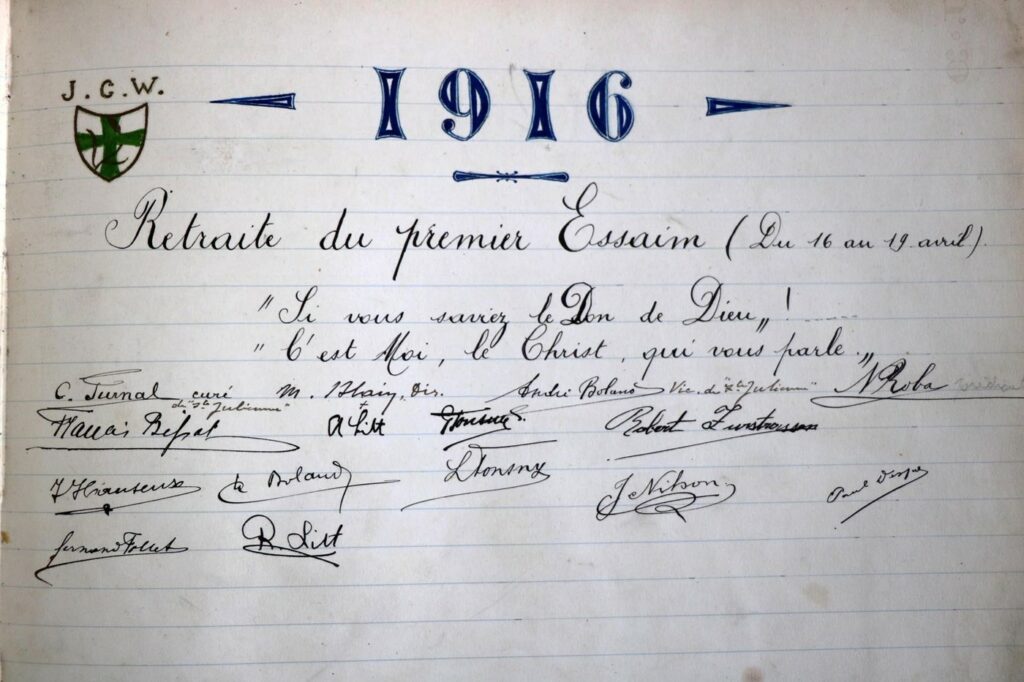 J. C. W.
1916
Retraite du premier Essaim (Du 16 au 19 avril).
"Si vous saviez le Don de Dieu„!
"C'est Moi, le Christ, qui vous parle.„
C. Turnal curé M. Blain, Dir. André Boland Vic. de "Ste Julienne" N Roba
de "Ste Julienne"
A Litt Robert
Boland J Nilson Paul
Fernand Follet R. Litt